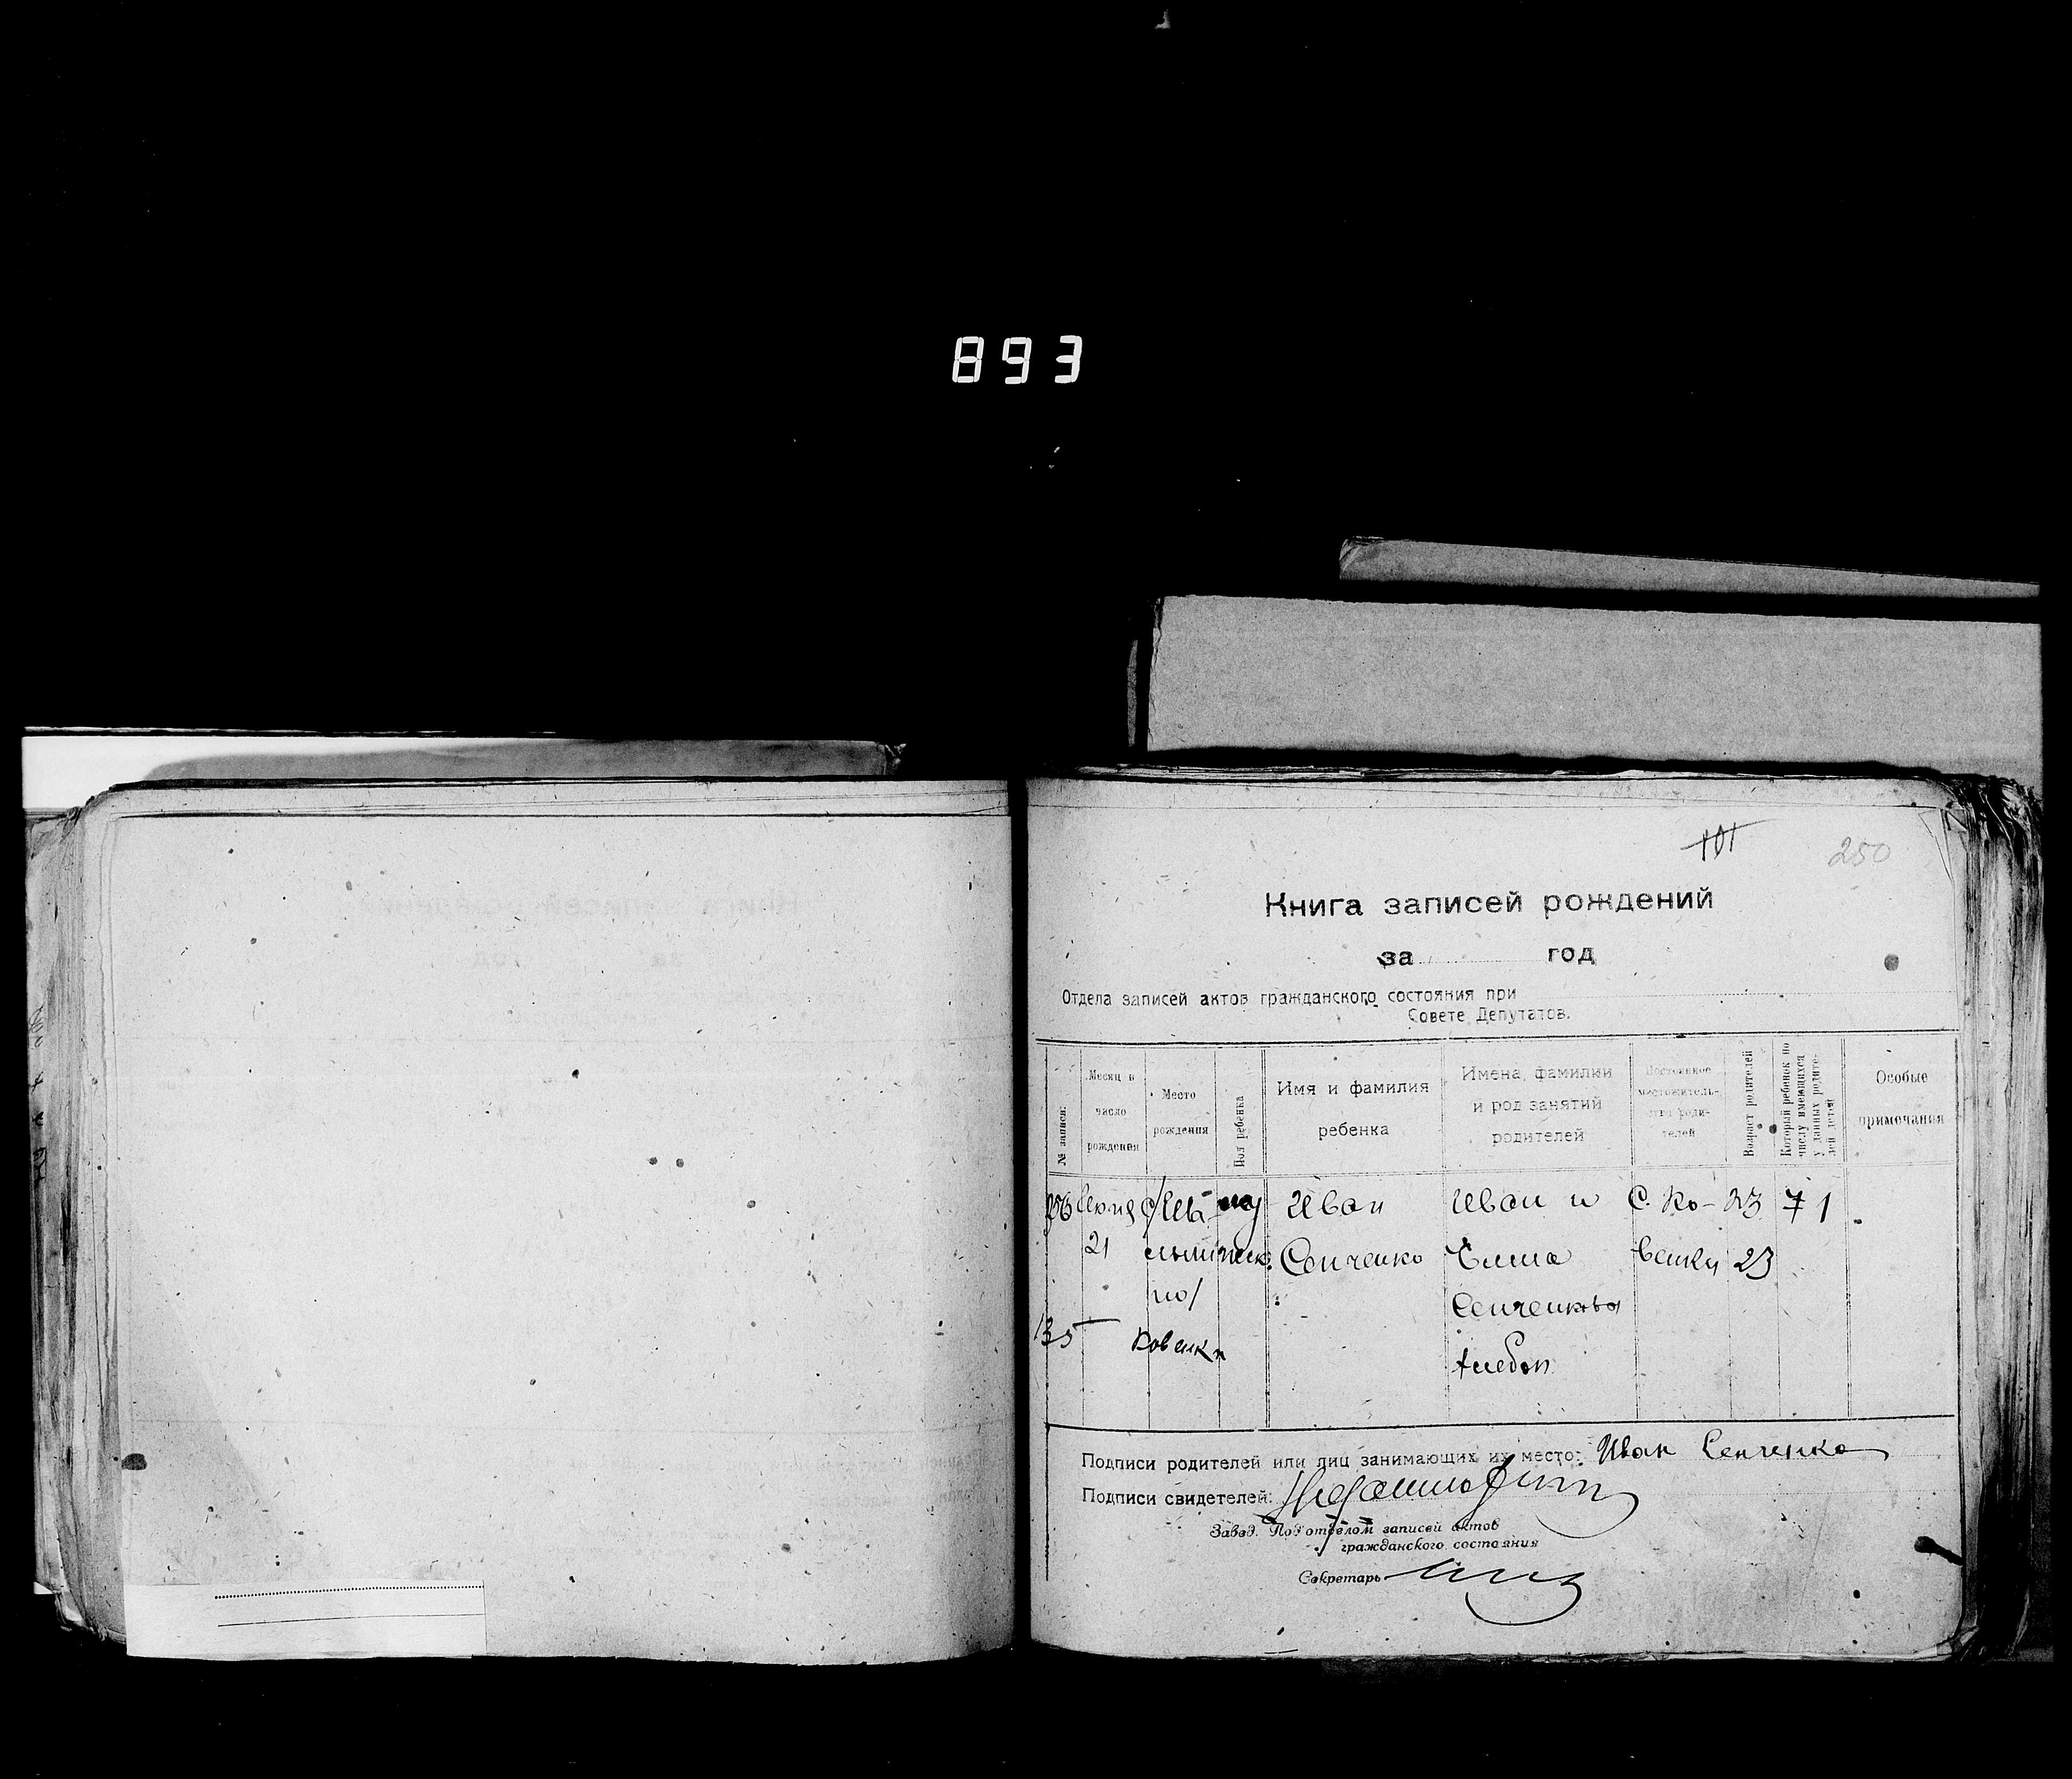 893
101
250
Книга записей рождений
за год
Отдела записей актов гражданского состояния при
Совете Депутатов.
№ записи.
Месяц и число рождения
Место рождения
Пол ребенка
Имя и фамилия ребенка
Имена, фамилии и род занятий родителей
Постоянное местожительство родителей
Возраст родителей
Который ребенок по числу имеющихся у данных родителей детей
Особые примечания
Иван Иван и С. Ко- 23 1
21 Сенченко венки 23
Сенченковы
Ковенки
Хлебоп
135
Подписи родителей или лиц занимающих их место: Иван Сенченко
Подписи свидетелей:
Завед. Подотделом записей актов
гражданского состояния
Секретарь